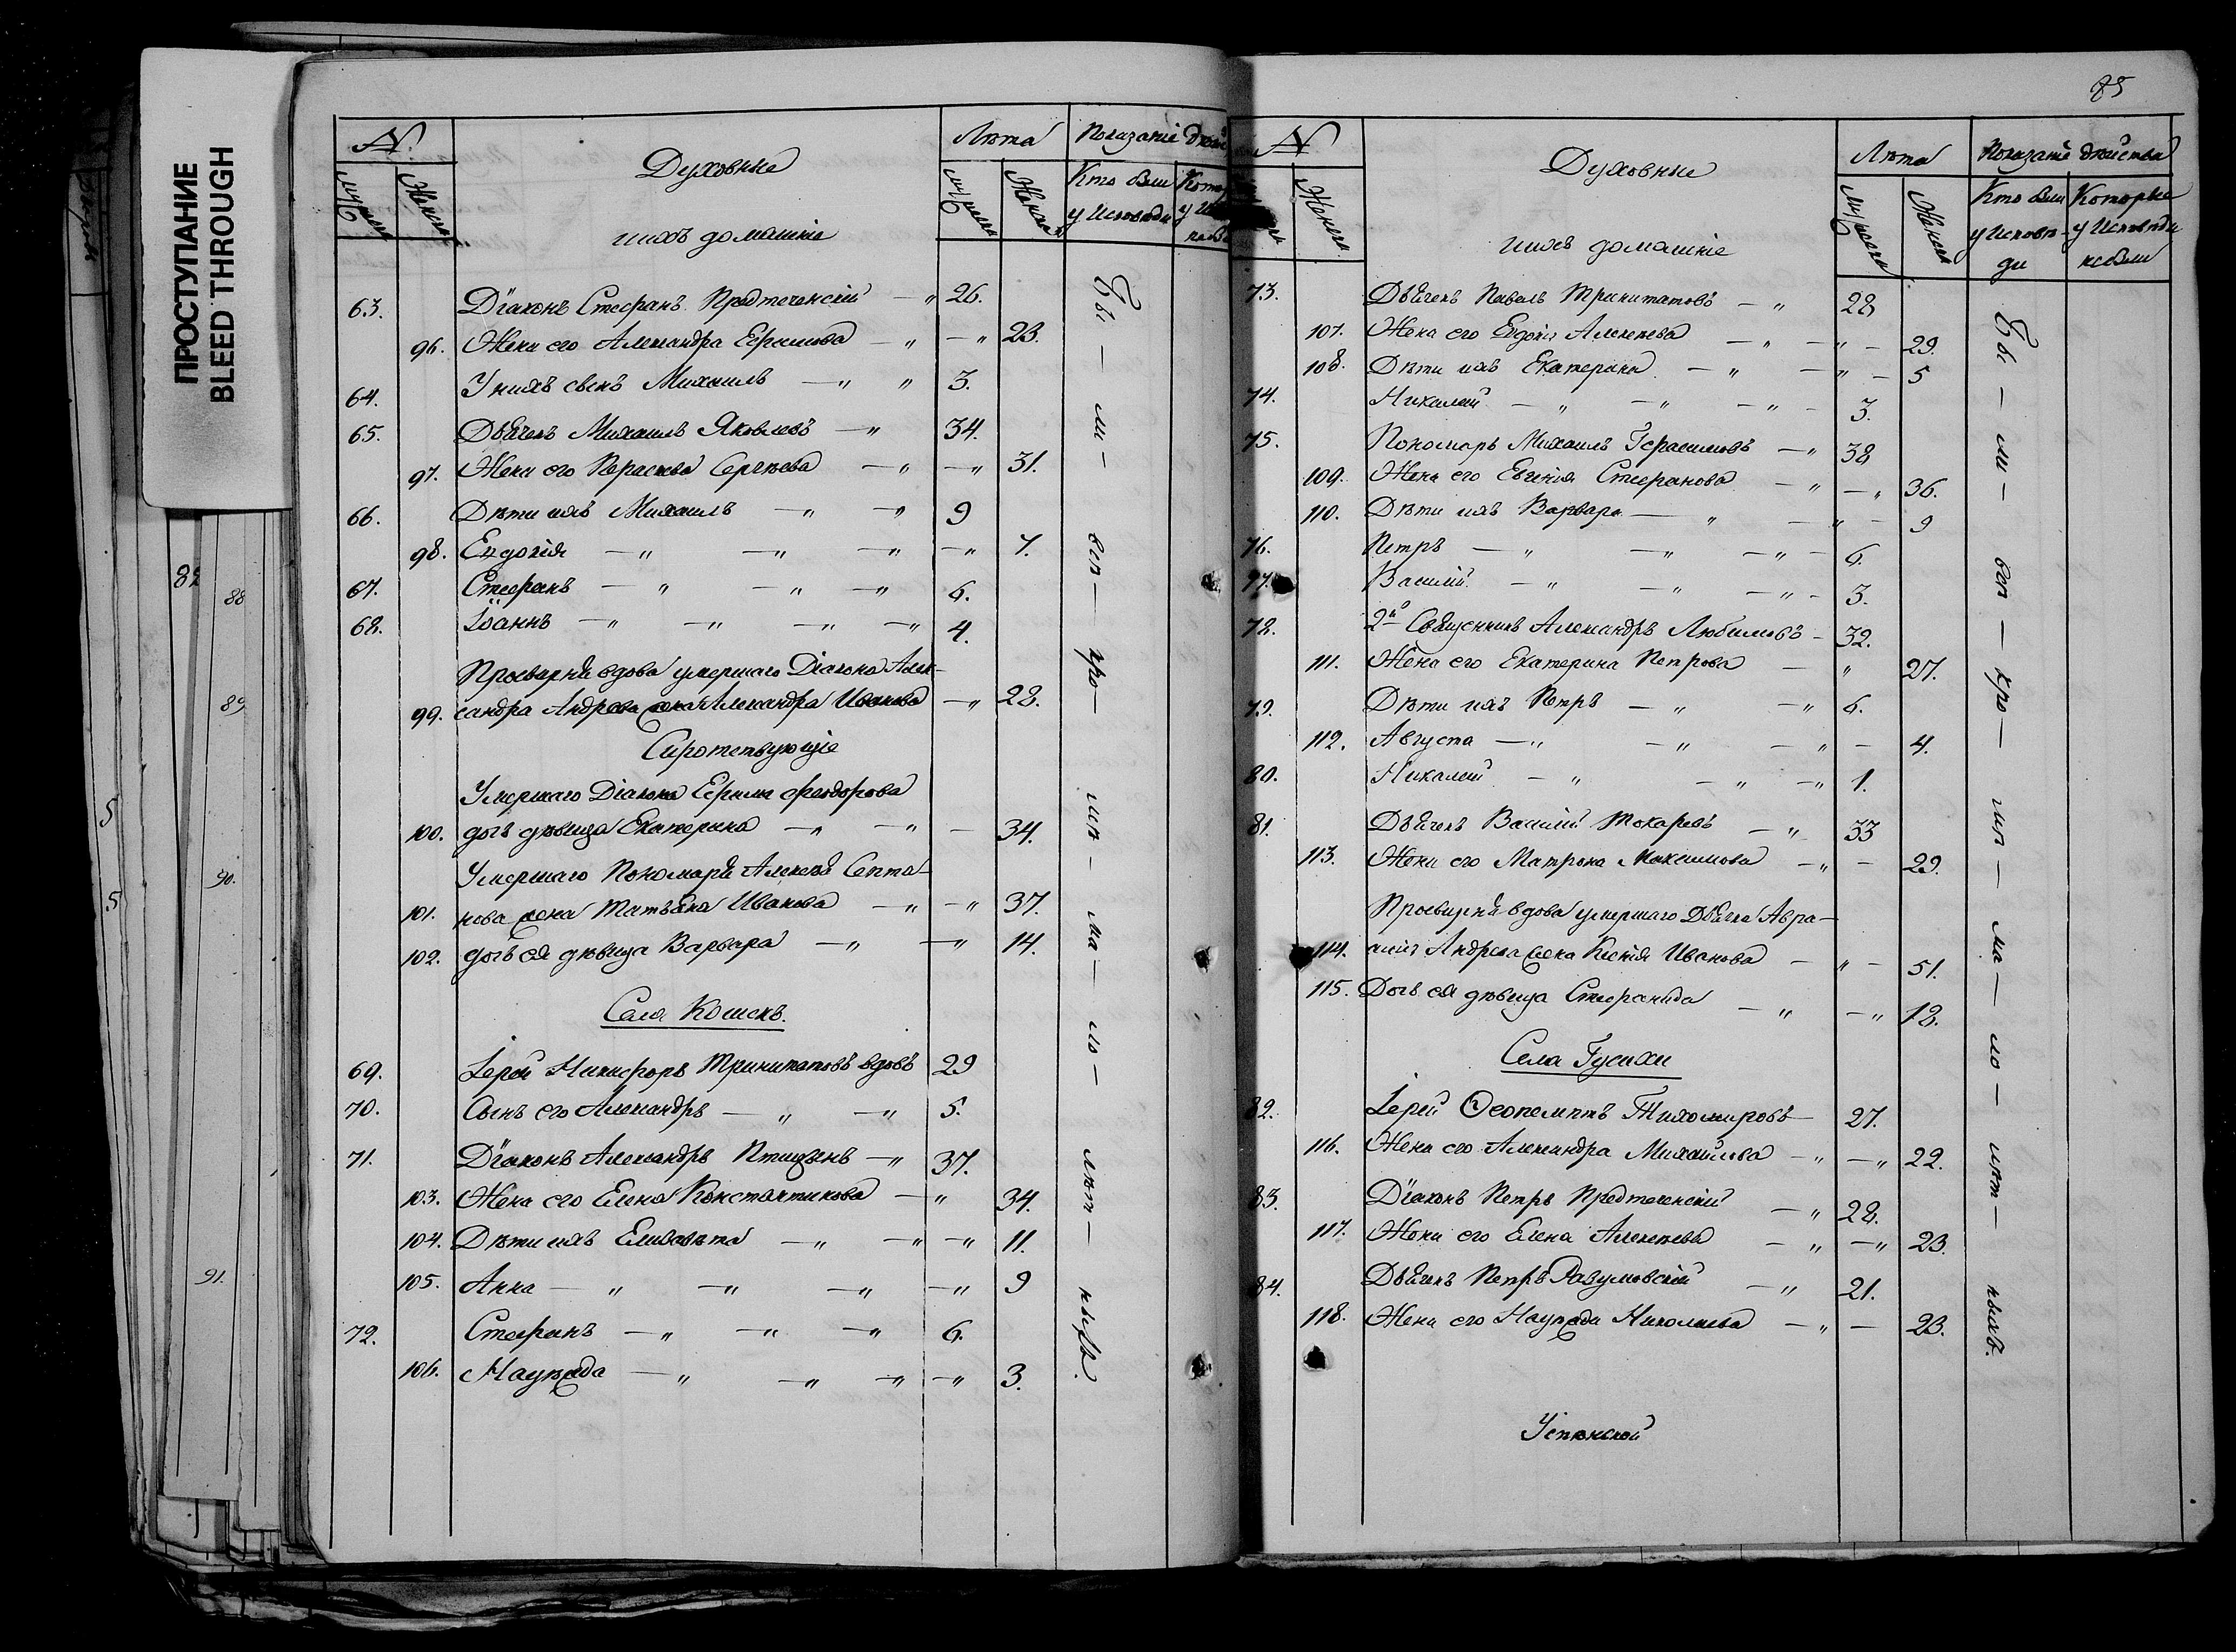 ПРОСТУПАНИЕ
BLEED THROUGH
88
89
90.
91.
5
5
№
Лѣта
Показаніе дѣй
Духовные
ихъ домашніе
Мужеска
Женска
Мужеска
Женска
Кто были у Исповѣди
63. Діаконъ Стефанъ Предтеченскій — „ 26.
96. Жена его Александра Ефимова — „ — „ 23.
64. У нихъ сынъ Михаилъ — „ „ 3.
65. Дьячекъ Михаилъ Яковлевъ — „ 34.
97. Жена его Параскева Сергѣева — „ — „ 31.
66. Дѣти ихъ Михаилъ — „ — „ 9
98. Евдокія — „ — „ — „ — „ 7.
67. Стефанъ — „ — „ — „ 6.
68. Іоаннъ — „ — „ — „ — „ 4.
Просвирня вдова умершаго Діакона Алек-
99. сандра Андреева жена Александра Иванова — „ 28.
Сиротствующіе
Умершаго Діакона Ефима Феодорова
100. дочь дѣвица Екатерина — „ — „ — 34.
Умершаго Пономаря Алексѣя Степа-
101. нова жена Татьяна Иванова — „ — „ 37.
102. дочь ея дѣвица Варвара — „ — „ 14.
Села Кошекъ.
69. Іерей Никифоръ Тринитатовъ вдовъ 29
70. Сынъ его Александръ — „ — „ 5.
71. Діаконъ Александръ Птицынъ — „ 37.
103. Жена его Елена Константинова — „ 34.
104. Дѣти ихъ Елисавета — „ — „ — „ 11.
105. Анна — „ — „ — „ — „ 9
72. Стефанъ — „ — „ — „ 6.
106. Надежда — „ — „ — „ — „ 3.
Бы — ли — всѣ — кро —
85
№
Лѣта
Показаніе дѣйства
Духовные
ихъ домашніе
Женска
Мужеска
Женска
Кто были у Исповѣ-
ди
Которые у Исповѣди
не были
73. Дьячекъ Павелъ Тринитатовъ — „ 28
107. Жена его Евдокія Алексѣева — „ — „ — 29.
108. Дѣти ихъ Екатерина — „ — „ — 5
74. Николай — „ — „ — „ — 3.
75. Пономарь Михаилъ Герасимовъ — „ 38
109. Жена его Евгенія Стефанова — „ — „ 36.
110. Дѣти ихъ Варвара — „ — „ — 9
76. Петръ — „ — „ — „ — 6.
77. Василій — „ — „ — „ — 3.
78. 2й Священникъ Александръ Любимовъ — 32.
111. Жена его Екатерина Петрова — „ 27.
79. Дѣти ихъ Петръ — „ — „ 6.
112. Августа — „ — „ — „ — 4.
80. Николай — „ — „ — „ 1.
81. Дьячекъ Василій Токаревъ — „ 33
113. Жена его Матрона Максимова — „ — 29.
Просвирня вдова умершаго Дьячка Авра-
114. амія Андреева жена Ксенія Иванова — „ — 51.
115. Дочь ея дѣвица Стефанида — „ — „ 18.
Села Гусихи
82. Іерей Ѳеопемптъ Тихомировъ — 27.
116. Жена его Александра Михайлова — „ — „ 22.
83. Діаконъ Петръ Предтеченскій — „ 28.
117. Жена его Елена Алексѣева — „ — „ 23.
84. Дьячекъ Петръ Разумовскій — „ 21.
118. Жена его Надежда Николаева — „ — 23.
Успенской
Бы — ли — всѣ — кро —